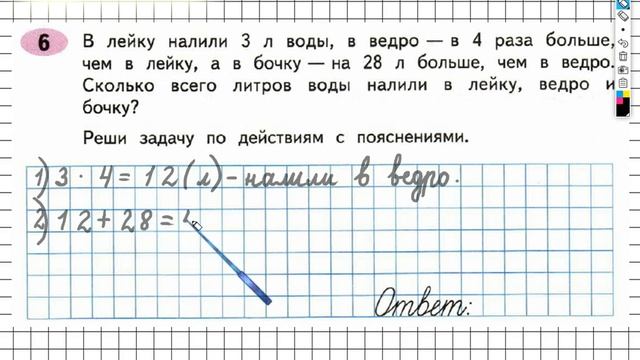 6 В лейку налили 3 л воды, в ведро — в 4 раза больше,
чем в лейку, а в бочку — на 28 л больше, чем в ведро.
Сколько всего литров воды налили в лейку, ведро и
бочку?
Реши задачу по действиям с пояснениями.
1) 3 · 4 = 12 (л) - налили в ведро.
2) 12 + 28 =
Ответ: